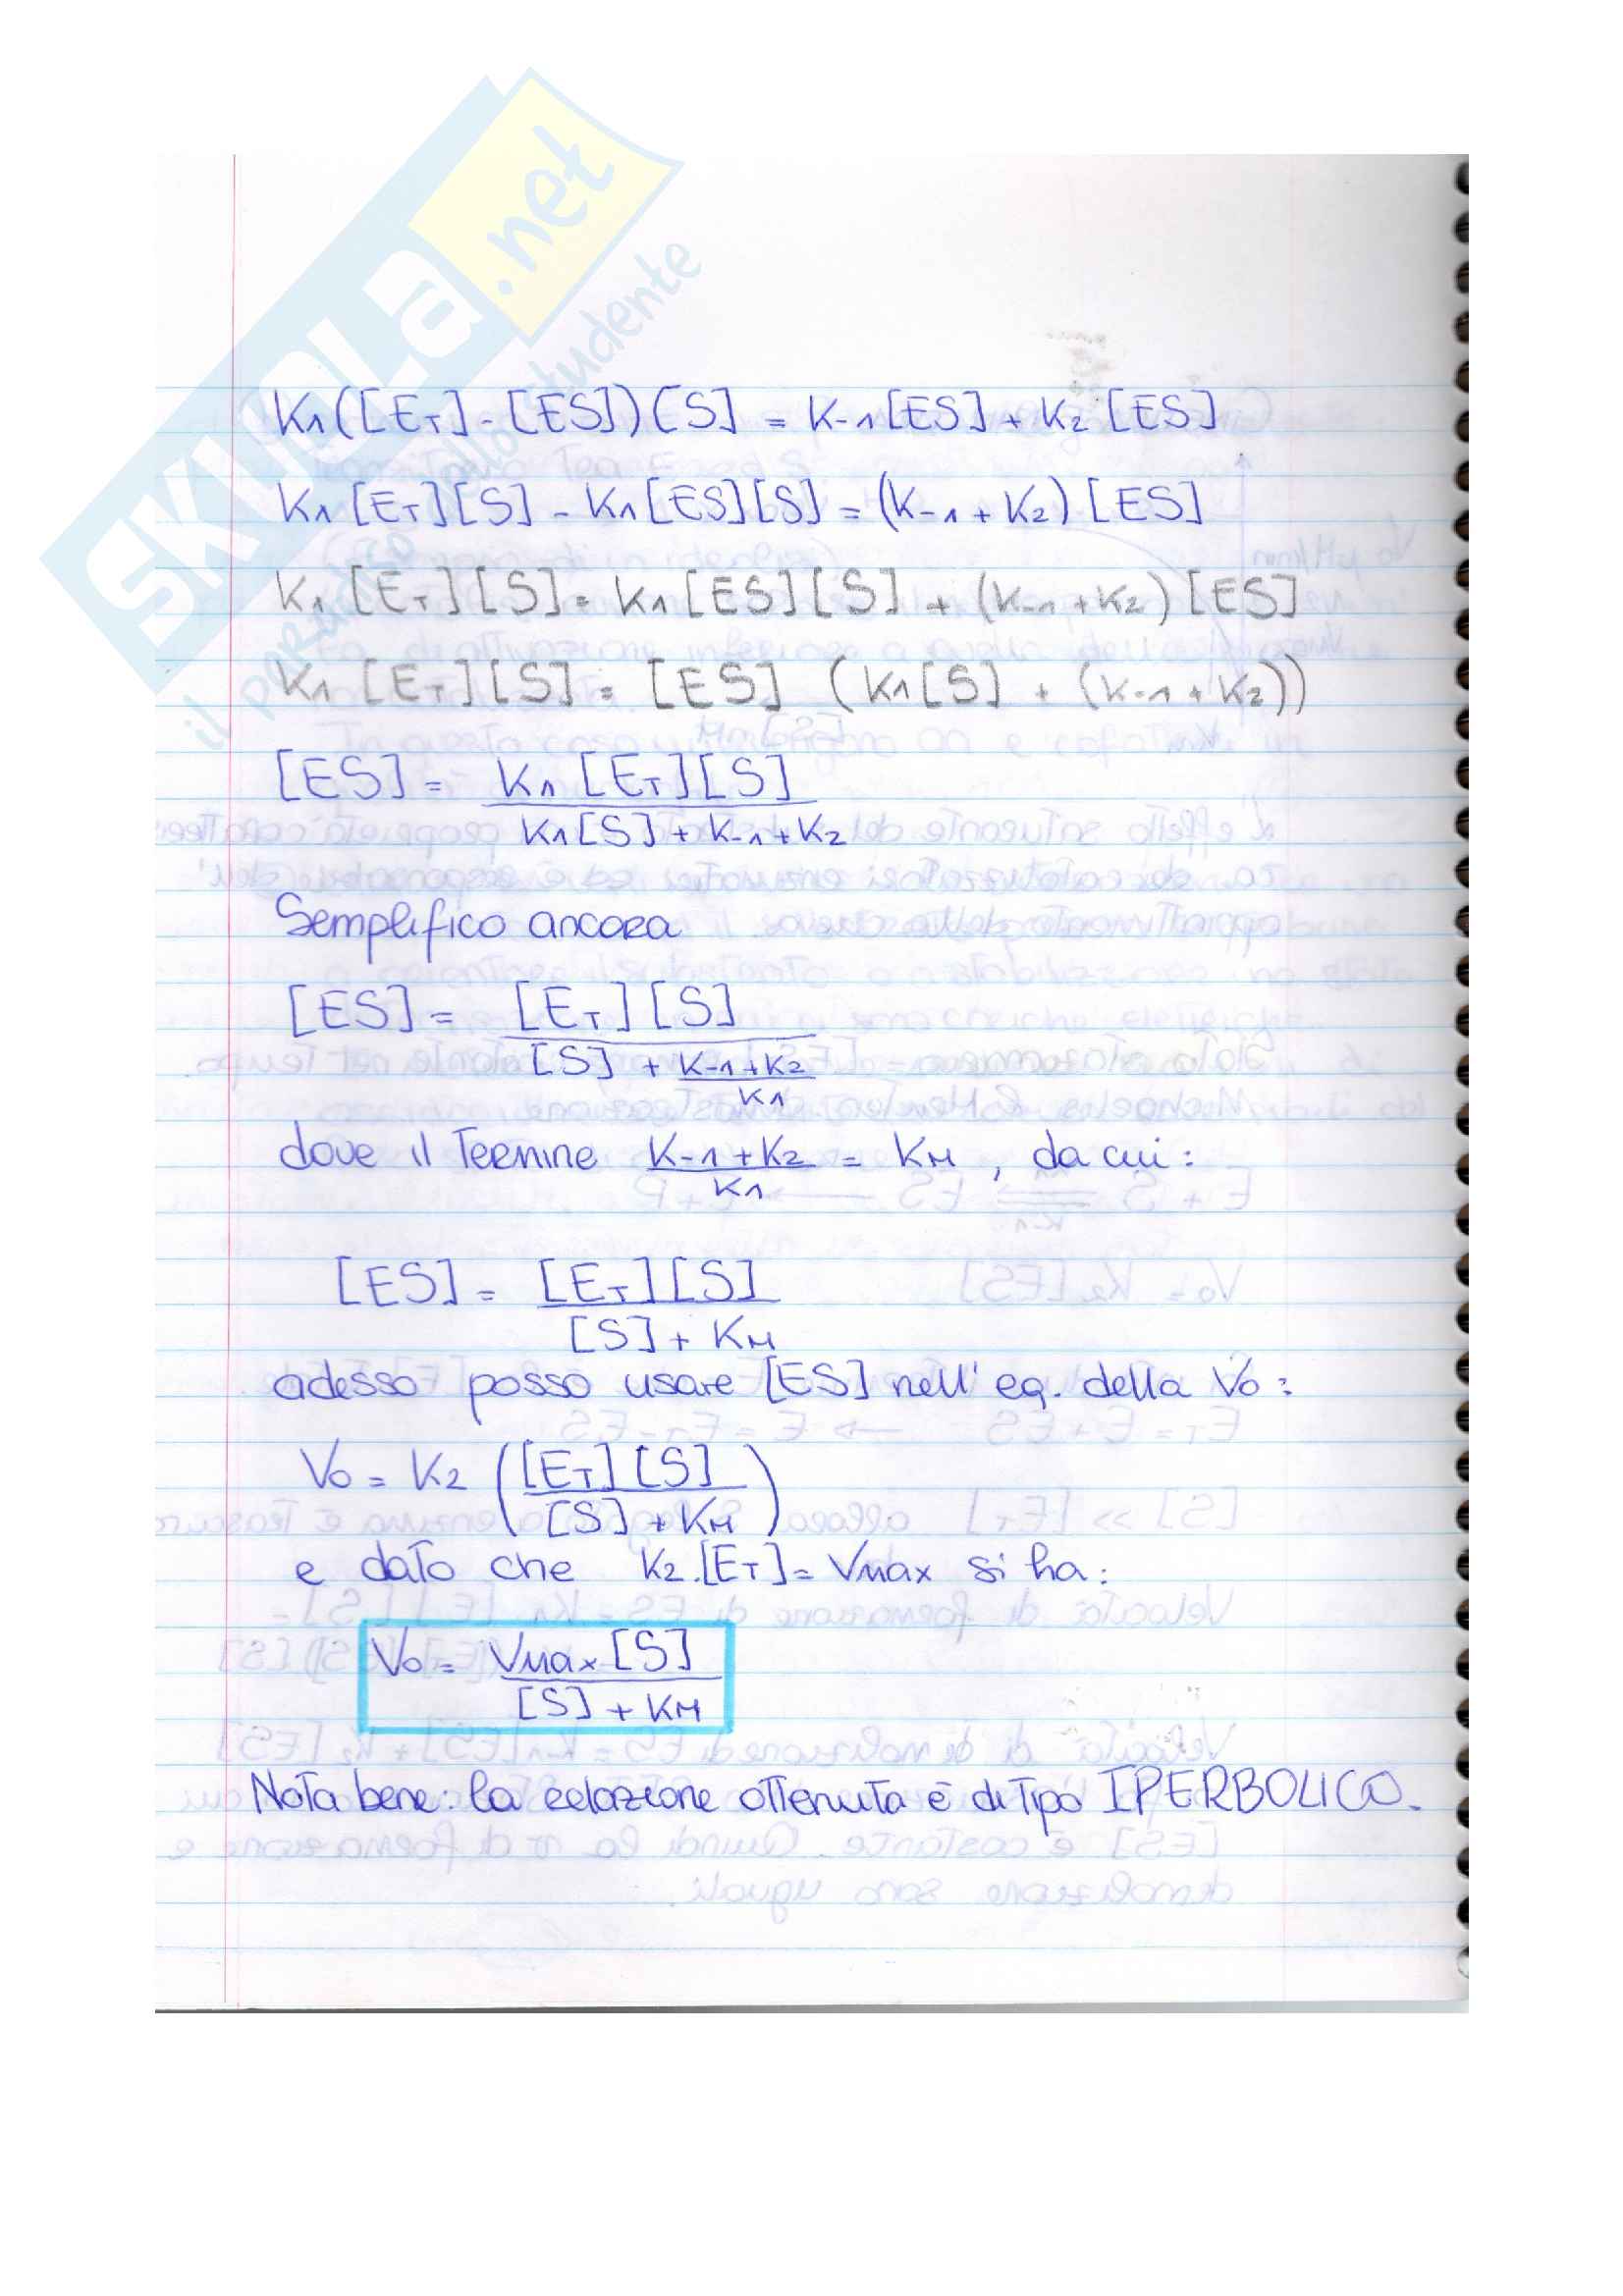 SKUOLA.net
il paradiso dello studente
K1([ET]-[ES])[S] = K-1[ES] + K2[ES]
K1[ET][S] - K1[ES][S] = (K-1 + K2)[ES]
K1[ET][S] = K1[ES][S] + (K-1 + K2)[ES]
K1[ET][S] = [ES] (K1[S] + (K-1 + K2))
[ES] = K1[ET][S]
K1[S] + K-1 + K2
Semplifico ancora
[ES] = [ET][S]
[S] + K-1 + K2
K1
dove il termine K-1 + K2 = KM , da cui:
K1
[ES] = [ET][S]
[S] + KM
adesso posso usare [ES] nell'eq. della V0:
V0 = K2 ([ET][S]
[S] + KM)
e dato che K2.[ET] = Vmax si ha:
V0 = Vmax [S]
[S] + KM
Nota bene: la relazione ottenuta è di tipo IPERBOLICO.